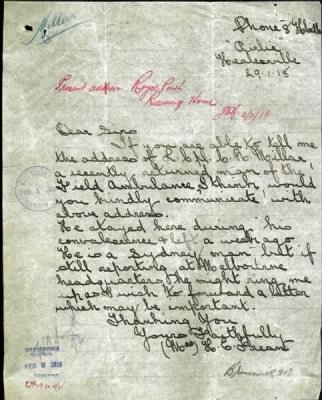 Millar
Phone 8 H'ville
"Airlie"
Healesville
29.1.18
Present address. Royal Park
Receiving Home
Dear Sirs
If you are able to tell me
the address of
Millar
a recently returned man of the
Field Ambulance, I think, would
you kindly communicate with
above address.
He stayed here during his
convalescence & left a week ago
He is a Sydney man but if
still reporting at Melbourne
headquarters he might ring me
up as I wish to forward a letter
which may be important.
Thanking You
Yours Faithfully
(Mrs) H E
FEB 2 1918